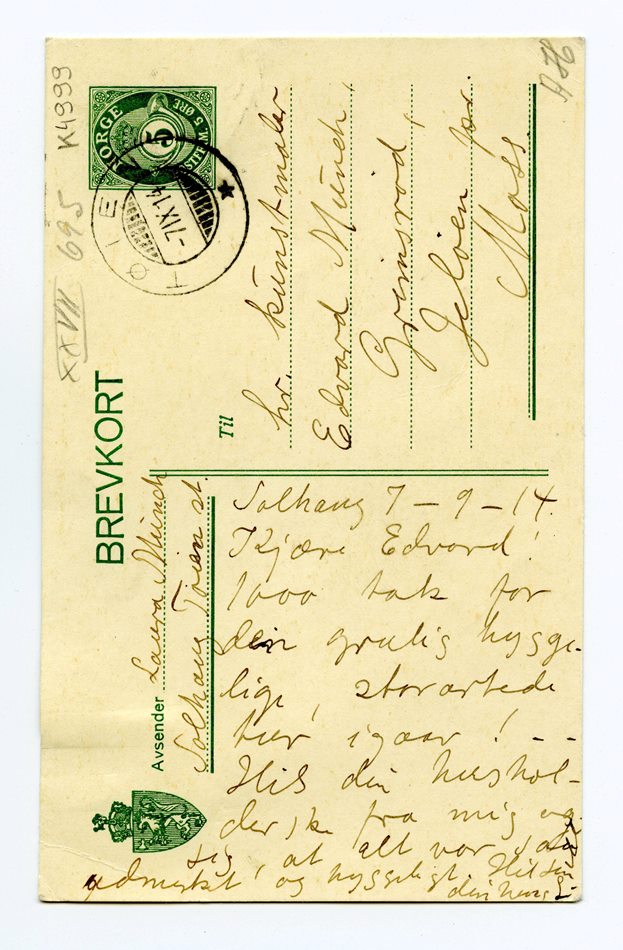 K4999
XXVII 695
A H
NORGE
5
TØIEN
-7 IX 14
BREVKORT
Til
hr. kunstmaler
Edvard Münch,
Grimsrød,
Jeløen for
Moss
Avsender Laura Münch
Solhaug Tøien st.
Solhaug 7-9-14.
Kjære Edvard!
1000 tak for
den gralig hygge-
lige, storartede
tur igaar! - -
Hils din hushol-
derske fra mig og
sig, at alt var saa
udmerket, og hyggeligt. Hilsen
din heng.